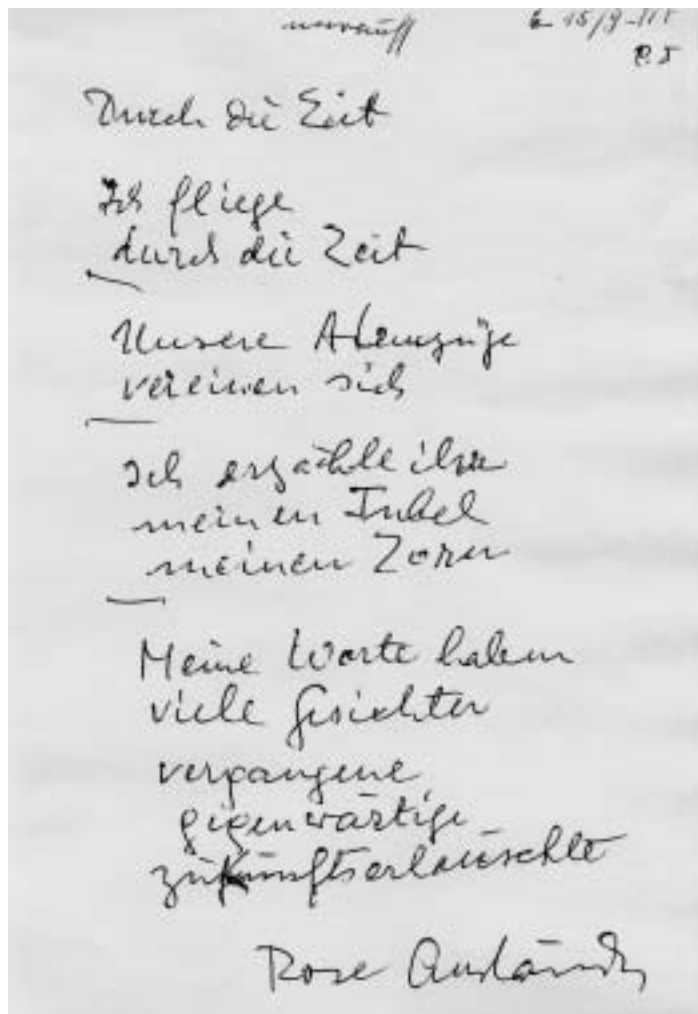 Durch die Zeit
Ich fliege
durch die Zeit
Unsere Atemzüge
vereinen sich
Ich erzähle ihr
meinen Jubel
meinen Zorn
Meine Worte haben
viele Gesichter
vergangene
gegenwärtige
zukunftserlauschte
Rose Ausländer